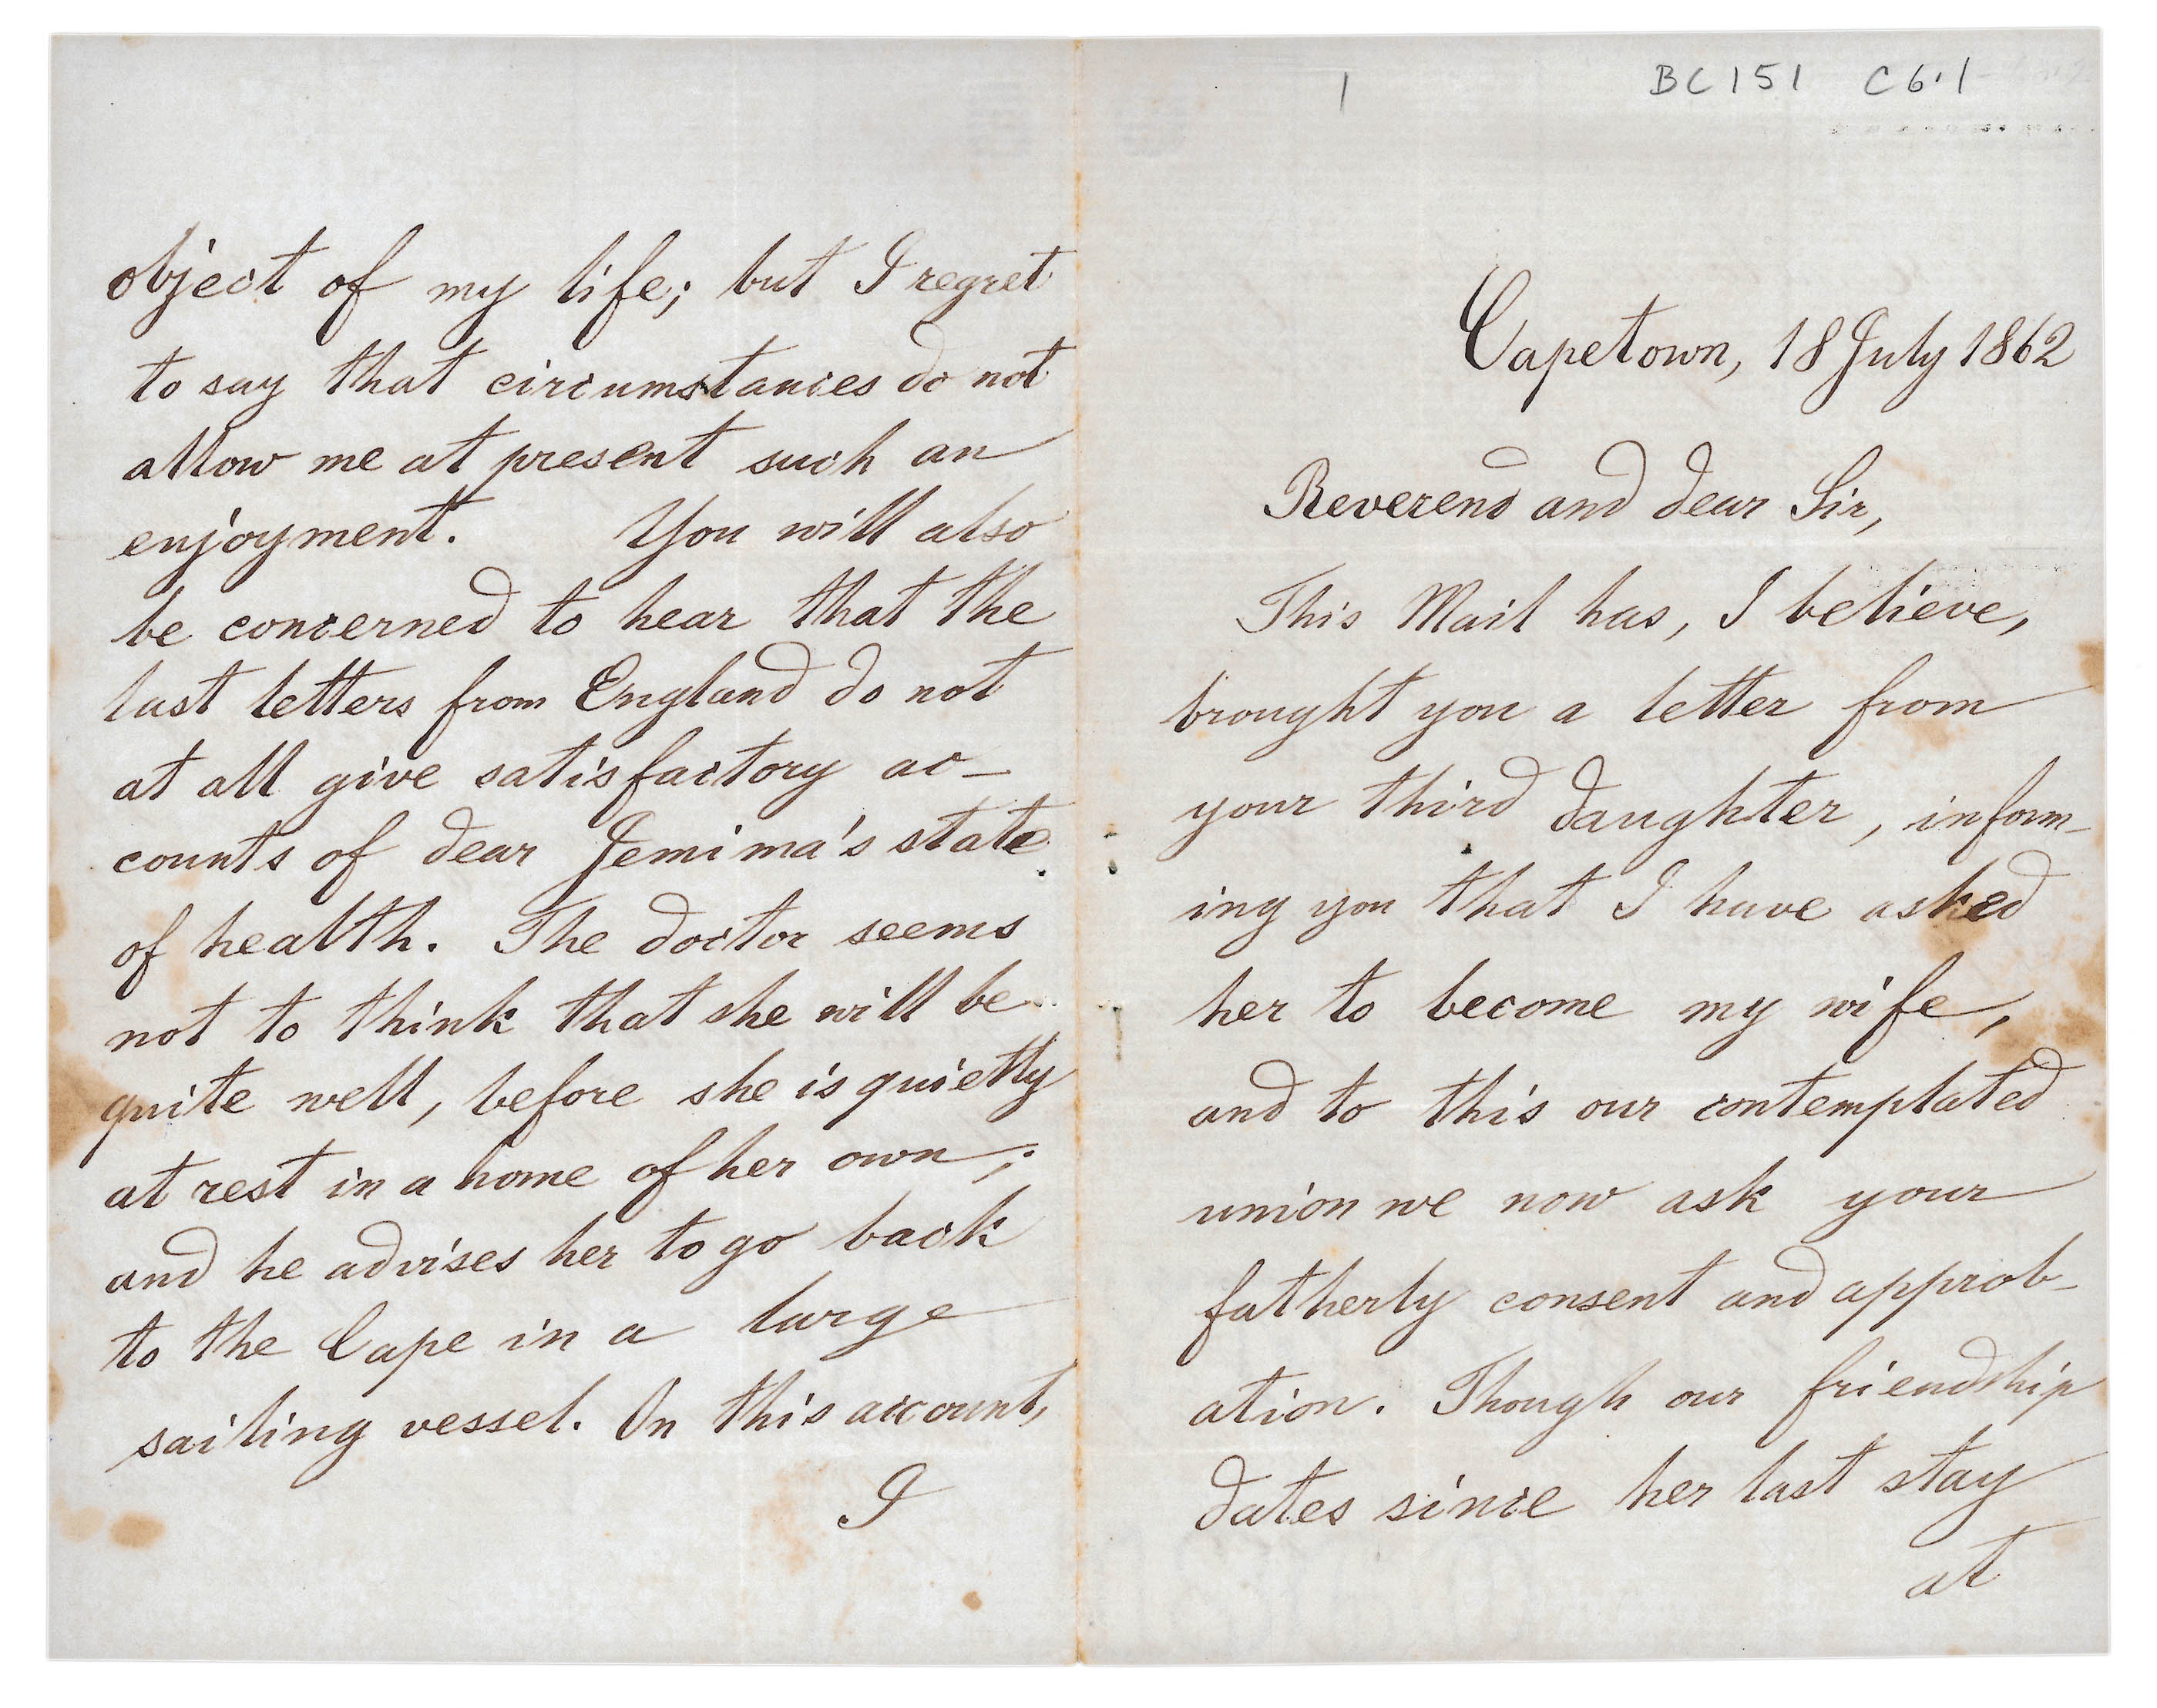 1 BC151 C6.1
Capetown, 18 July 1862
Reverend and dear Sir,
This Mail has, I believe,
brought you a letter from
your third daughter, inform-
ing you that I have asked
her to become my wife,
and to this our contemplated
union we now ask your
fatherly consent and approb-
ation. Though our friendship
dates since her last stay
at
object of my life; but I regret
to say that circumstances do not
allow me at present such an
enjoyment. You will also
be concerned to hear that the
last letters from England do not
at all give satisfactory ac-
counts of dear Jemima's state
of health. The doctor seems
not to think that she will be
quite well, before she is quietly
at rest in a home of her own;
and he advises her to go back
to the Cape in a large
sailing vessel. On this account,
I